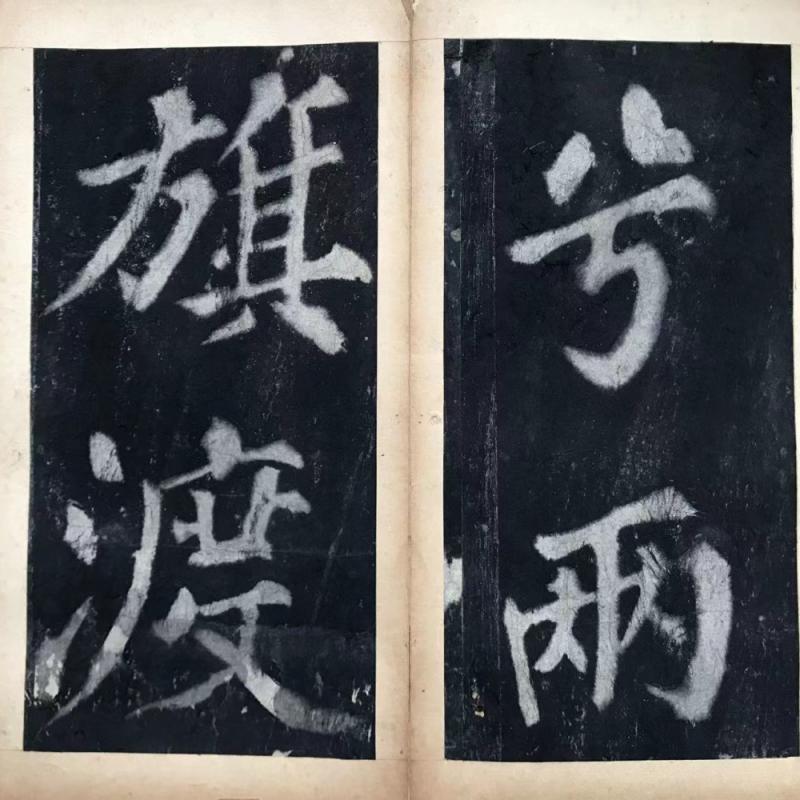 兮兩
旗渡